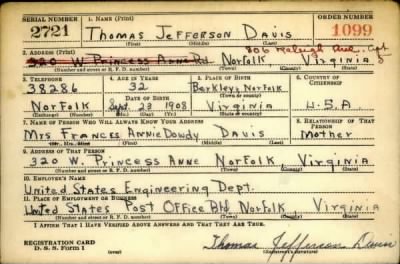 SERIAL NUMBER 1. NAME (Print) ORDER NUMBER
2721 Thomas Jefferson Davis 1099
(First) (Middle) (Last)
2. ADDRESS (Print) 806 Raleigh Ave. Apt 3
320 W. Princess Anne Rd. Norfolk, Virginia
(Number and street or R. F. D. number) (Town) (County) (State)
3. TELEPHONE 4. AGE IN YEARS 5. PLACE OF BIRTH 6. COUNTRY OF CITIZENSHIP
38286 32 Berkley, Norfolk
DATE OF BIRTH (Town or county)
Norfolk Sept. 23 1908 Virginia U.S.A.
(Exchange) (Number) (Mo.) (Day) (Yr.) (State or country)
7. NAME OF PERSON WHO WILL ALWAYS KNOW YOUR ADDRESS 8. RELATIONSHIP OF THAT PERSON
Mrs Frances Annie Dowdy Davis Mother
(Mr., Mrs., Miss) (First) (Middle) (Last)
9. ADDRESS OF THAT PERSON
320 W. Princess Anne Norfolk Virginia
(Number and street or R. F. D. number) (Town) (County) (State)
10. EMPLOYER'S NAME
United States Engineering Dept.
11. PLACE OF EMPLOYMENT OR BUSINESS
United States Post Office Bld Norfolk Virginia
(Number and street or R. F. D. number) (Town) (County) (State)
I AFFIRM THAT I HAVE VERIFIED ABOVE ANSWERS AND THAT THEY ARE TRUE.
REGISTRATION CARD
D. S. S. Form 1 Thomas Jefferson Davis
(Registrant's signature)